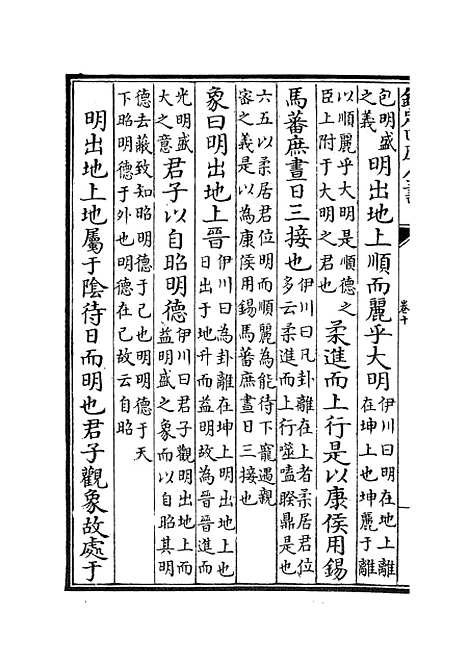 卷十
包明盛
之義
明出地上順而麗乎大明
伊川曰明在地上離
在坤上也坤麗于離
以順麗乎大明是順德之
臣上附于大明之君也
柔進而上行是以康侯用錫
馬蕃庶晝日三接也
伊川曰凡卦離在上者柔居君位
多云柔進而上行噬嗑睽鼎是也
六五以柔居君位明而順麗為能待下寵遇親
密之義是以為康侯用錫馬蕃庶晝日三接也
象曰明出地上晉
伊川曰為卦離在坤上明出地上也
日出于地升而益明故為晉晉進而
光明盛
大之意
君子以自昭明德
伊川曰君子觀明出地上而
益明盛之象而以自昭其明
德去蔽致知昭明德于己也明明德于天
下昭明德于外也明德在己故云自昭
明出地上地屬于陰待日而明也君子觀象故處于